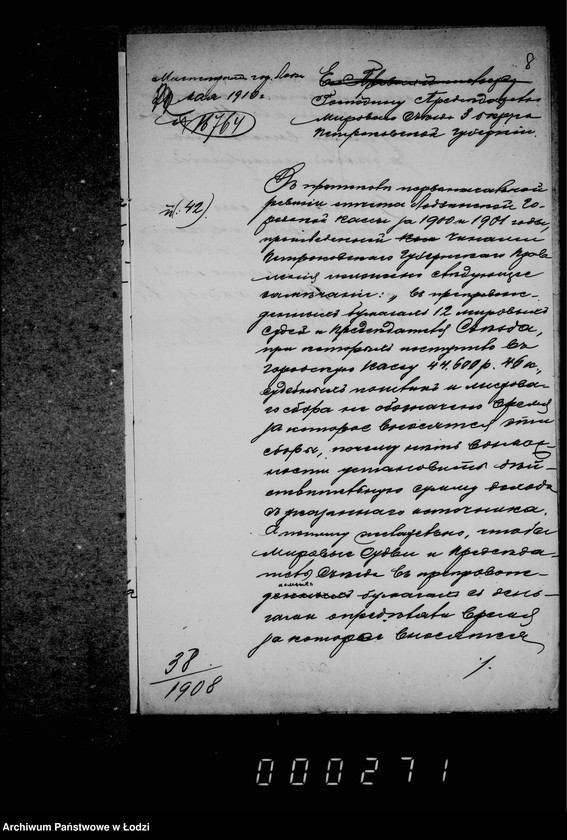 8
Магистрат гор. Лодзи
Мая 1910 г.
№ 16764
Господину Председателю
Мирового Съезда 3 округа
Петроковской Губернии.
42).
Въ протоколе первоначальной
ревизии отчета Лодзинской Го-
родской Кассы за 1900 и 1901 годы,
произведенной Чинами
Петроковскаго Губернскаго Правле-
ния изложено следующее
замечание: „въ препровож-
денныхъ бумагахъ 12 мировыхъ
Судей и Председателя Съезда,
при которыхъ поступило въ
городскую Кассу 44.600 р. 46 к.,
судебныхъ пошлинъ и мирова-
го сбора не обозначено время
за которое вносятся эти
сборы, почему нетъ возмож-
ности установить дей-
ствительную сумму дохода
съ указаннаго источника.
А потому желательно, чтобы
Мировые Судьи и Председа-
тель Съезда въ препровож-
бумагахъ съ день-
гами определяли время
за которое вносятся
38
1908
/.
000271
Archiwum Państwowe w Łodzi